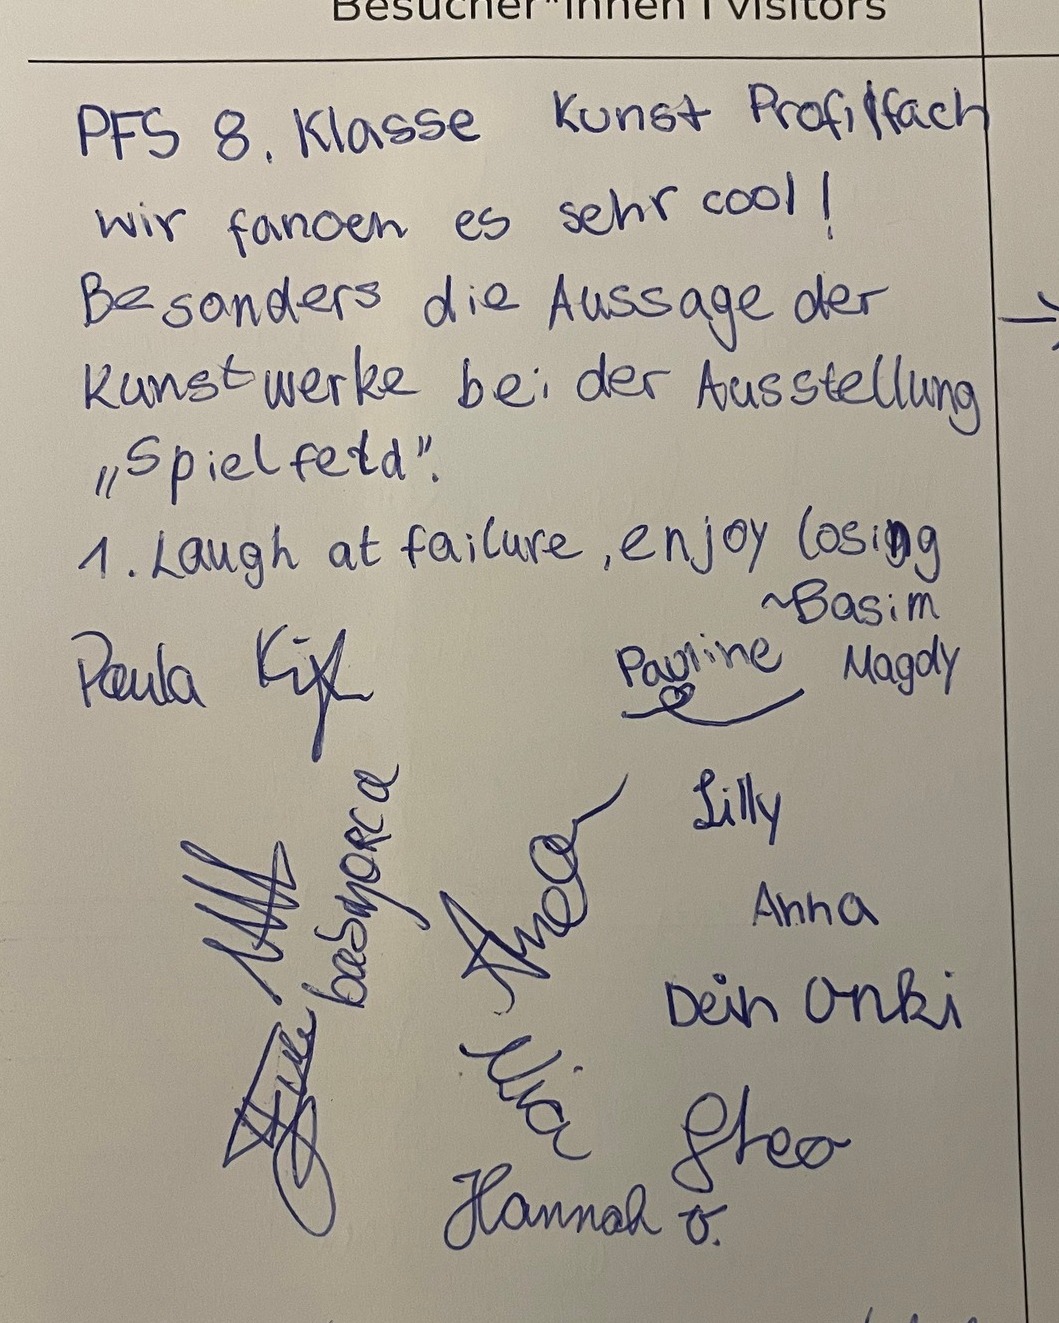 Besucher*innen | visitors
PFS 8. Klasse Kunst Profilfach
wir fanden es sehr cool!
Besonders die Aussage der
Kunstwerke bei der Ausstellung
„Spielfeld".
1. Laugh at failure, enjoy losing
~Basim
Magdy
Paula
Pauline
Lilly
Anna
Dein Onki
Mia
Hannah O.